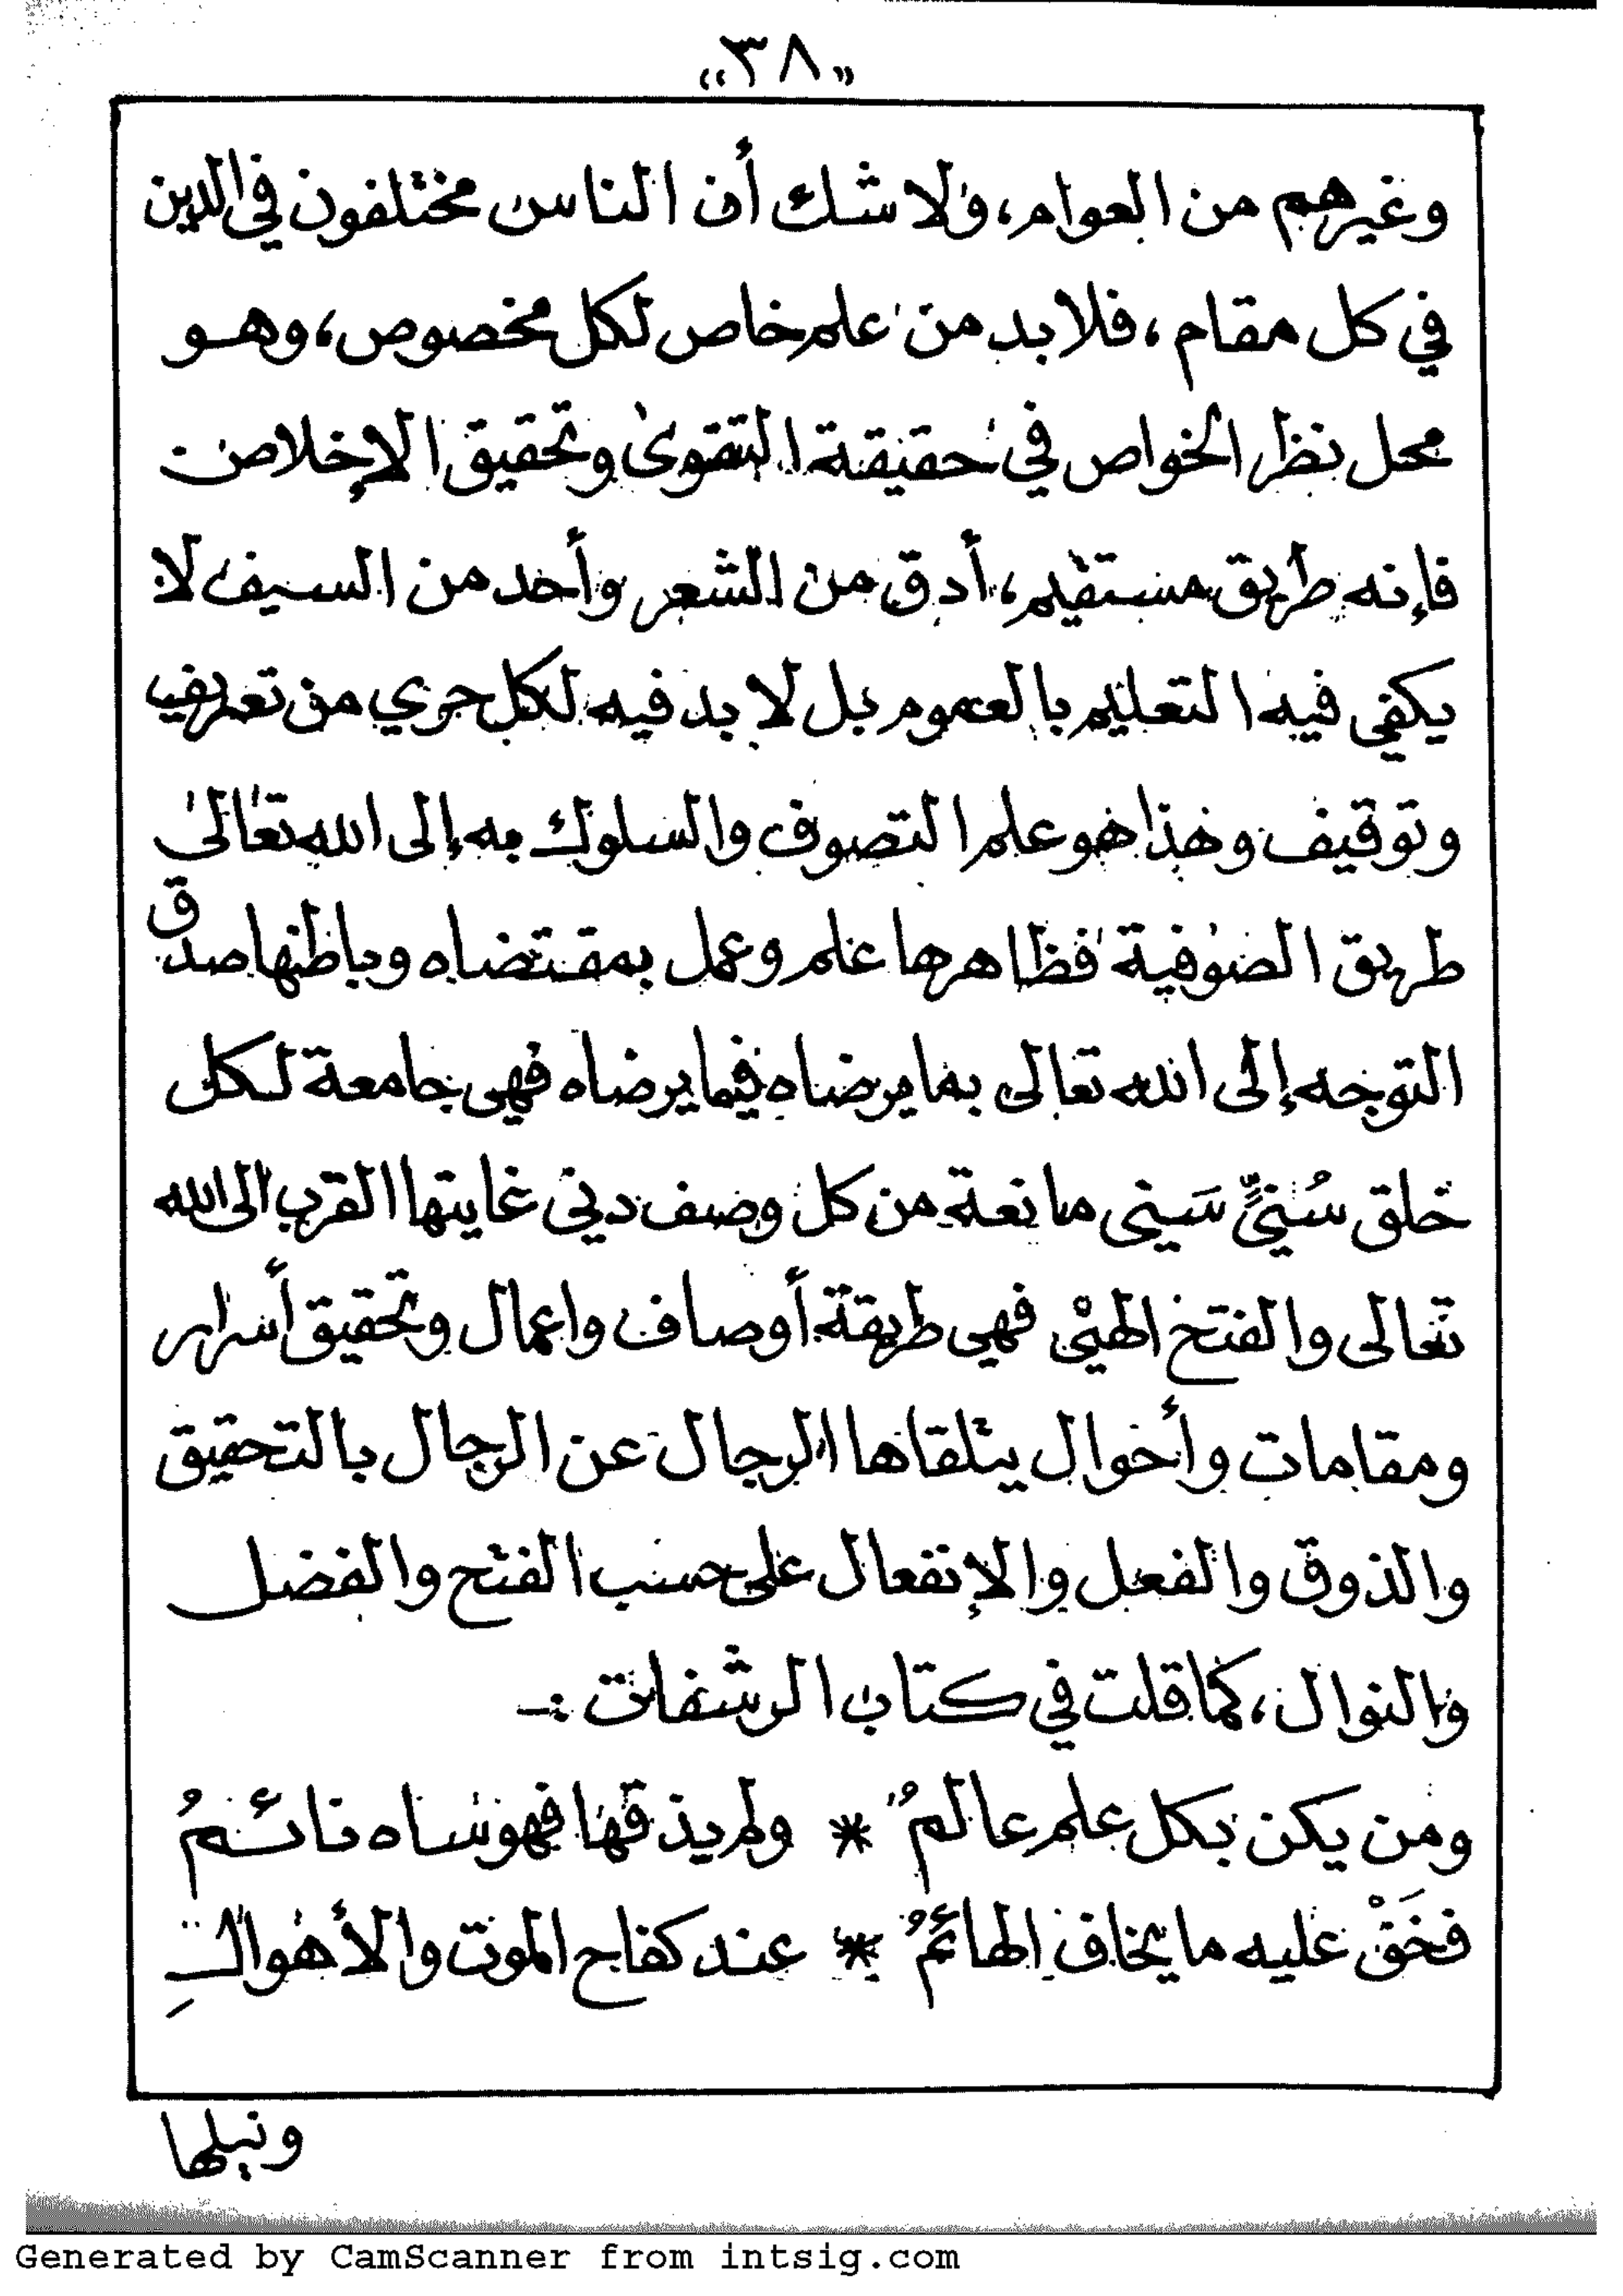 «٣٨»
وغيرهم من العوام، ولا شك أن الناس مختلفون في الدين
في كل مقام، فلا بد من علم خاص لكل مخصوص، وهو
محل نظر الخواص في حقيقة التقوى وتحقيق الإخلاص
فإنه طريق مستقيم، أدق من الشعر وأحد من السيف لا
يكفي فيه التعليم بالعموم بل لا بد فيه لكل جري من تعريف
وتوقيف وهذا هو علم التصوف والسلوك به إلى الله تعالى
طريق الصوفية فظاهرها علم وعمل بمقتضاه وباطنها صدق
التوجه إلى الله تعالى بما يرضاه فيما يرضاه فهي جامعة لكل
خلق سُنيٍّ سَني مانعة من كل وصف دني غايتها القرب الى الله
تعالى والفتح الهني فهي طريقة أوصاف واعمال وتحقيق أسرار
ومقامات وأحوال يتلقاها الرجال عن الرجال بالتحقيق
والذوق والفعل والإنفعال على حسب الفتح والفضل
والنوال، كما قلت في كتاب الرشفات :-
ومن يكن بكل علم عالمُ * ولم يذقها فهو ساه نائمُ
فخَفْ عليه ما يخاف الهائمُ * عند كفاح الموت والأهوالِ
ونيلها
Generated by CamScanner from intsig.com